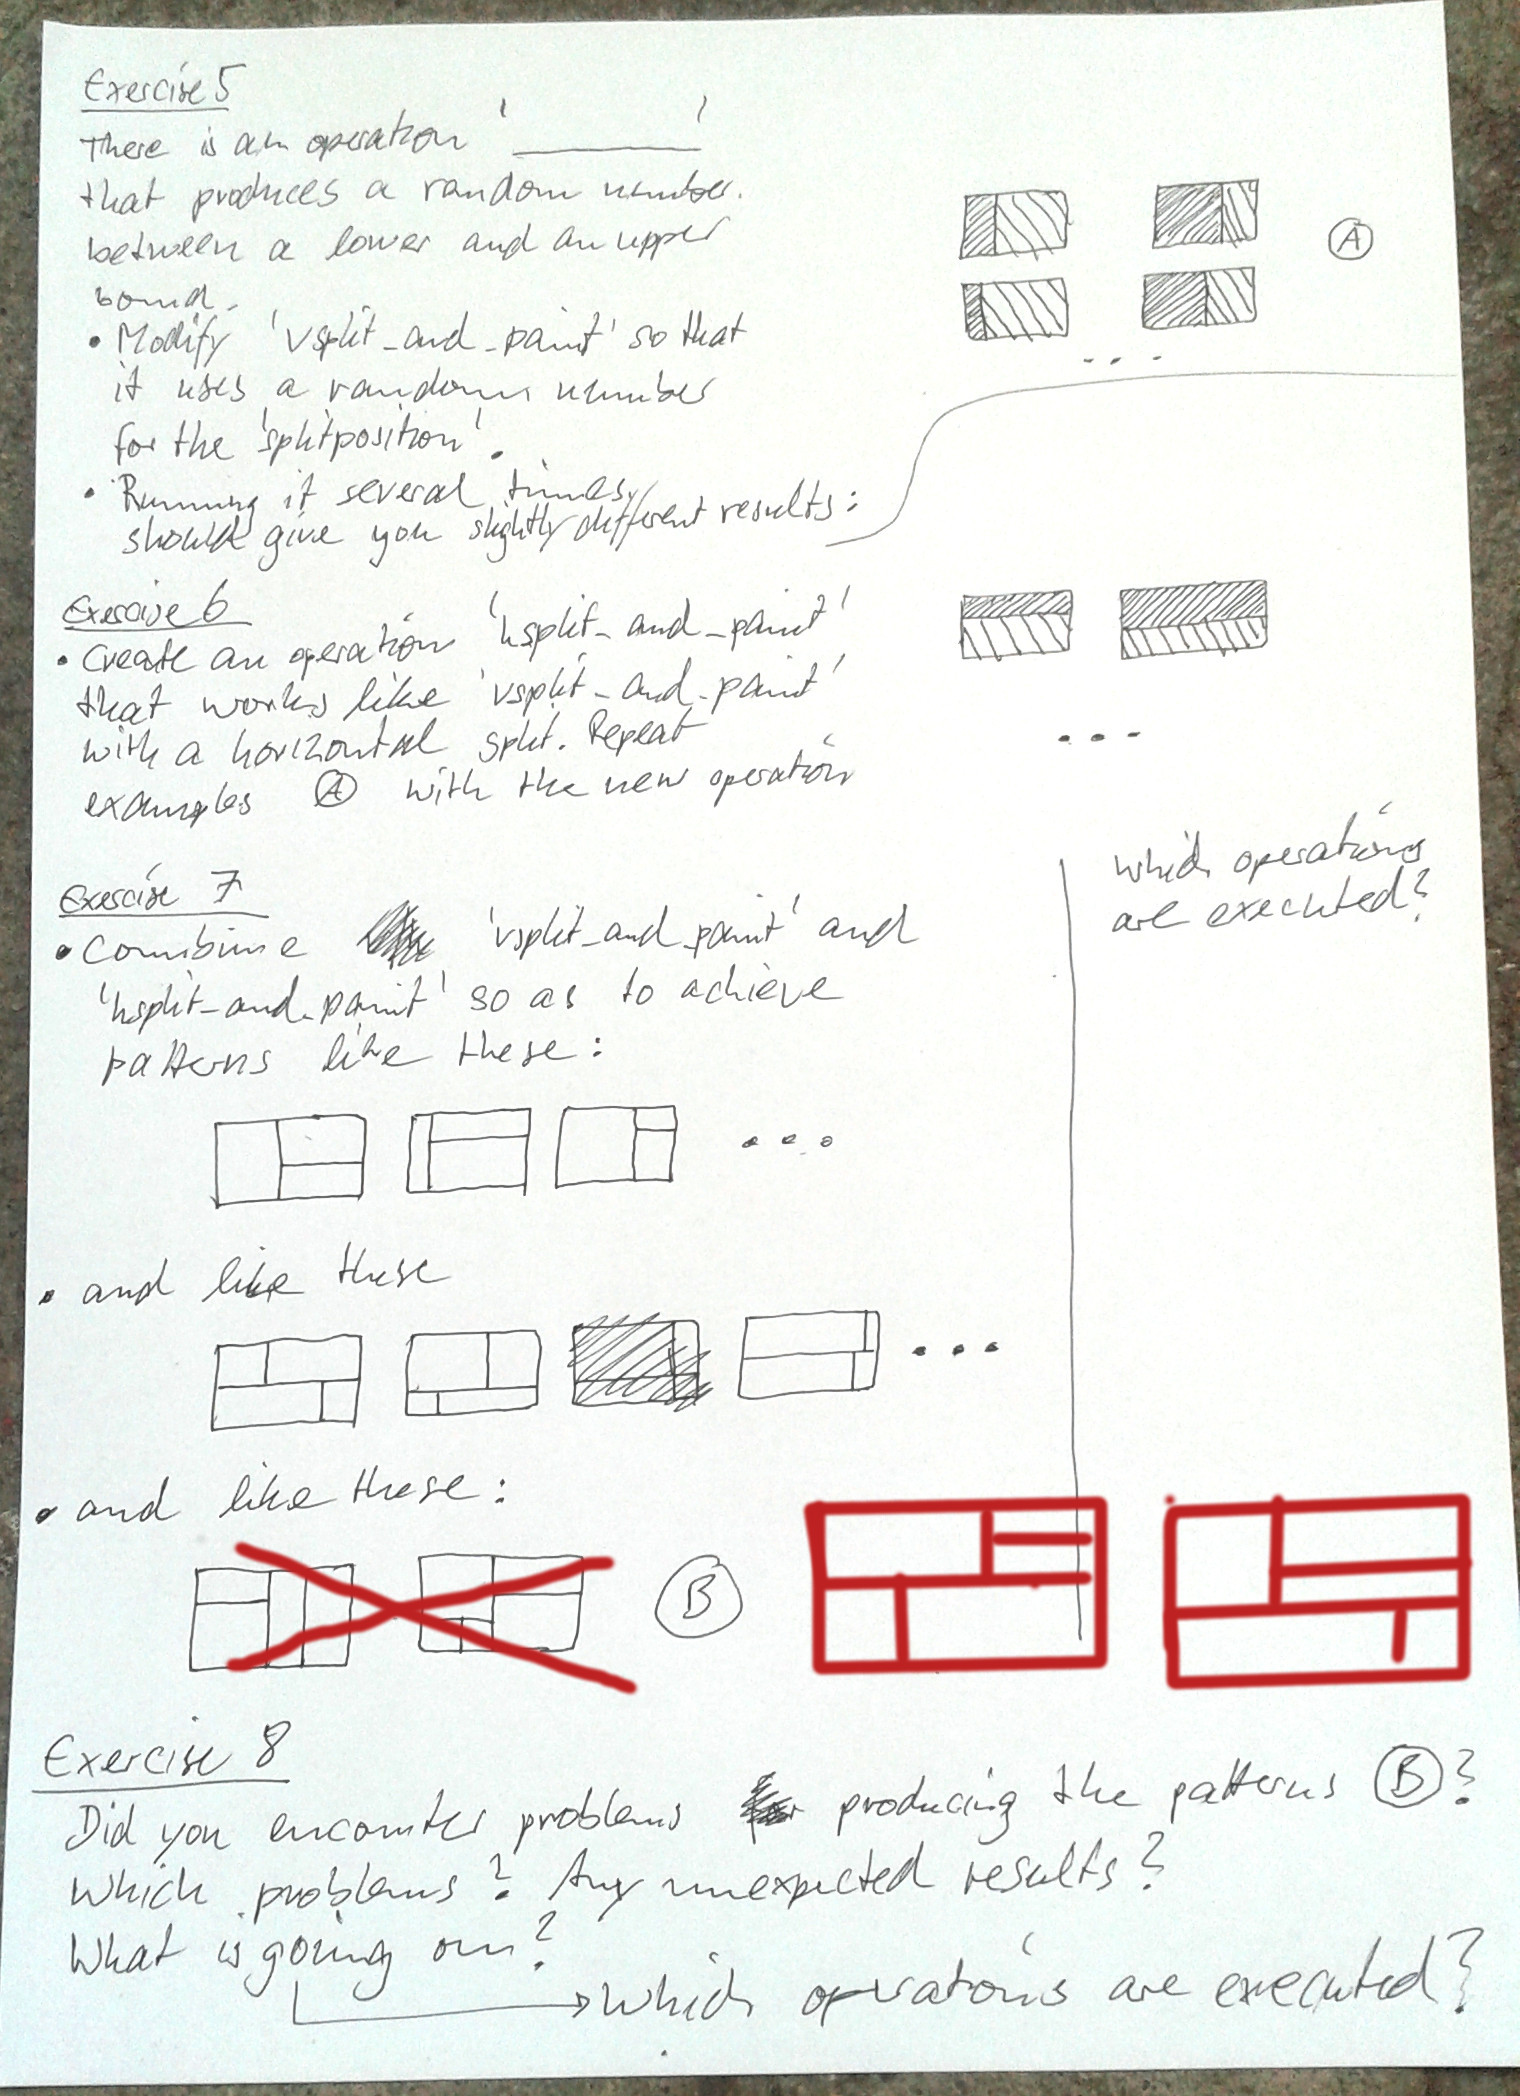 Exercise 5
There is an operation '_______'
that produces a random number.
between a lower and an upper
bound.
• Modify 'vsplit_and_paint' so that
it uses a random number
for the 'splitposition'.
• Running it several times,
should give you slightly different results:
A
...
Exercise 6
• Create an operation 'hsplit_and_paint'
that works like 'vsplit_and_paint'
with a horizontal split. Repeat
examples A with the new operation
...
Exercise 7
• Combine 'vsplit_and_paint' and
'hsplit_and_paint' so as to achieve
patterns like these:
...
• and like these
...
• and like these:
B
which operations
are executed?
Exercise 8
Did you encounter problems producing the patterns B?
Which problems? Any unexpected results?
What is going on?
which operations are executed?